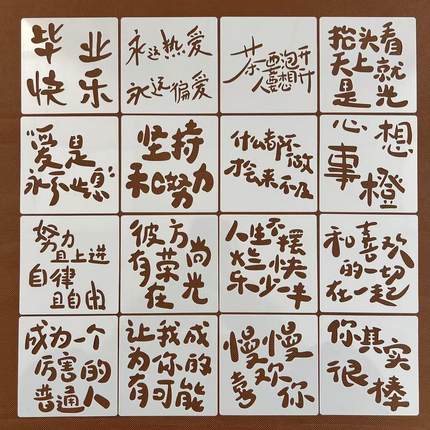 毕业
快乐
永远热爱
永远偏爱
茶要泡开
人要想开
抬头看
天上就
是光
爱是
永不止息
坚持
和努力
什么都不做
才会来不及
心想
事橙
努力
且上进
自律
且自由
彼方尚
有荣光
在
人生不摆
烂快
乐少一半
和喜欢
的一切
在一起
成为一个
厉害的
普通人
让我成
为你的
有可能
慢慢
喜欢你
你其实
很棒